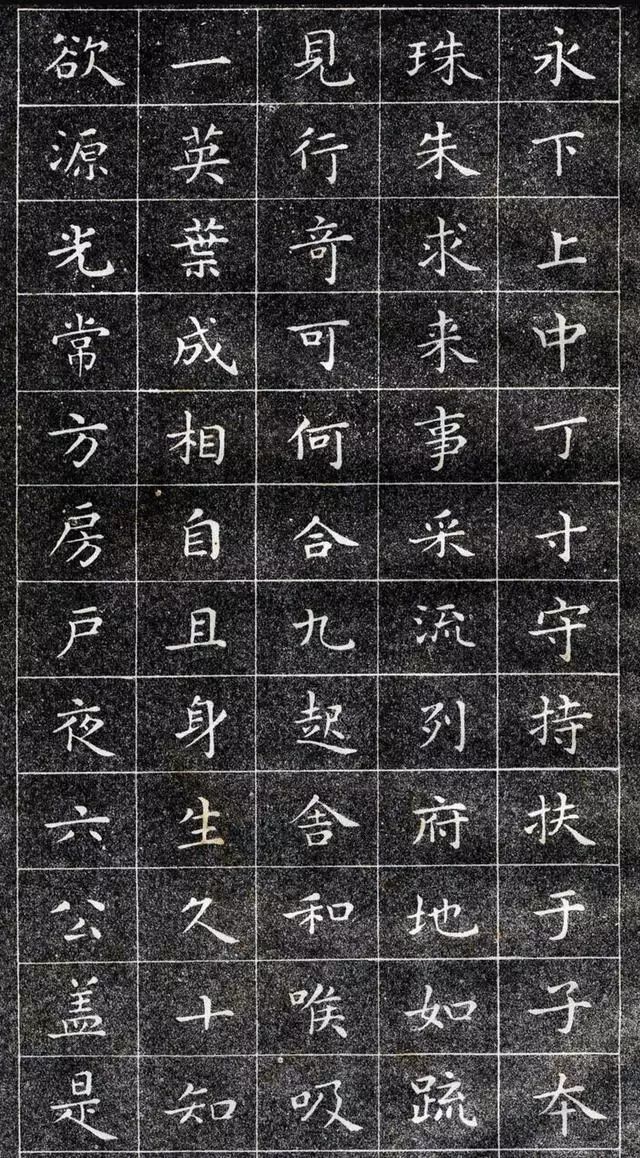 永下上中丁寸守持扶于子本
珠朱求来事采流列府地如䟽
見行奇可何合九起舍和喉吸
一英葉成相自且身生久十知
欲源光常方房戶夜六公盖是